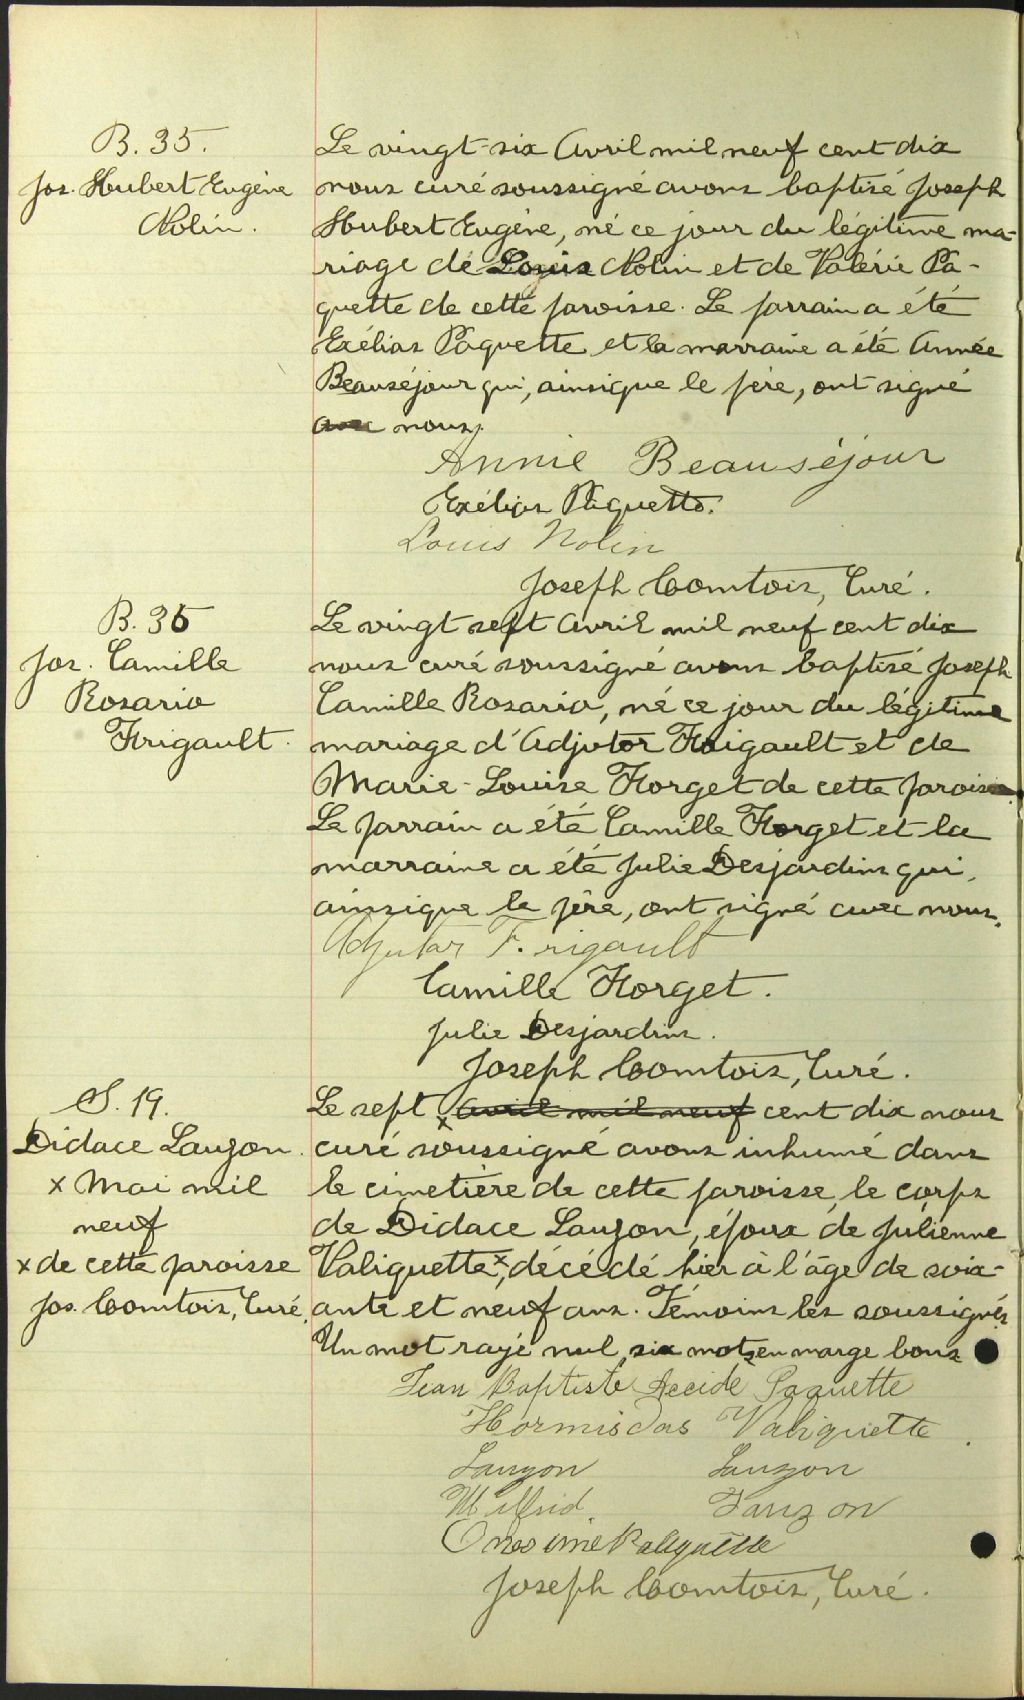 B. 35.
Jos. Hubert Eugène
Nolin.
Le vingt-six Avril mil neuf cent dix
nous curé soussigné avons baptisé Joseph
Hubert Eugène, né ce jour du légitime ma-
riage de Louis Nolin et de Valérie Pa-
quette de cette paroisse. Le parrain a été
Exélias Paquette et la marraine a été Année
Beauséjour qui, ainsique le père, ont signé
avec nous.
Annie Beauséjour
Exélias Paquette.
Louis Nolin
Joseph Comtois, Curé.
B. 36
Jos. Camille
Rosario
Frigault.
Le vingt sept Avril mil neuf cent dix
nous curé soussigné avons baptisé Joseph
Camille Rosario, né ce jour du légitime
mariage d'Adjutor Frigault et de
Marie-Louise Forget de cette paroisse.
Le parrain a été Camille Forget et la
marraine a été Julie Desjardins qui,
ainsique le père, ont signé avec nous.
Adjutor F. rigault
Camille Forget.
Julie Desjardins.
Joseph Comtois, Curé.
S. 19.
Didace Lauzon.
x Mai mil
neuf
x de cette paroisse
Jos. Comtois, Curé.
Le sept x Avril mil neuf cent dix nous
curé soussigné avons inhumé dans
le cimetière de cette paroisse, le corps
de Didace Lauzon, époux de Julienne
Valiquette x, décédé hier à l'âge de soix-
ante et neuf ans. Témoins les soussignés.
Un mot rayé nul, six mots en marge bons
Jean Baptiste Accide Paquette
Hormisdas Valiquette.
Lauzon Lauzon
Wilfrid Lauzon
Onesime Valiquette
Joseph Comtois, Curé.